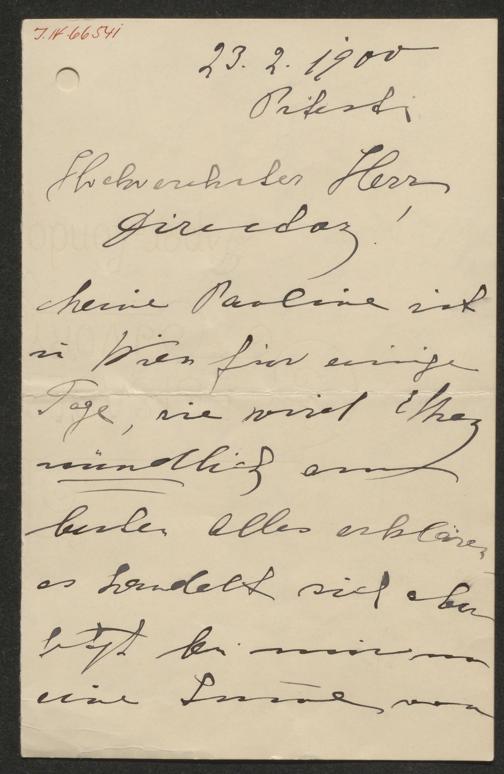 J.N. 66541
23. 2. 1900
Pitesti
Hochverehrter Herr
Director!
Meine Pauline ist
in Wien für einige
Tage, sie wird Ihnen
mündlich am
besten Alles erklären
es handelt sich eben
jetzt bei mir um
eine Summe von